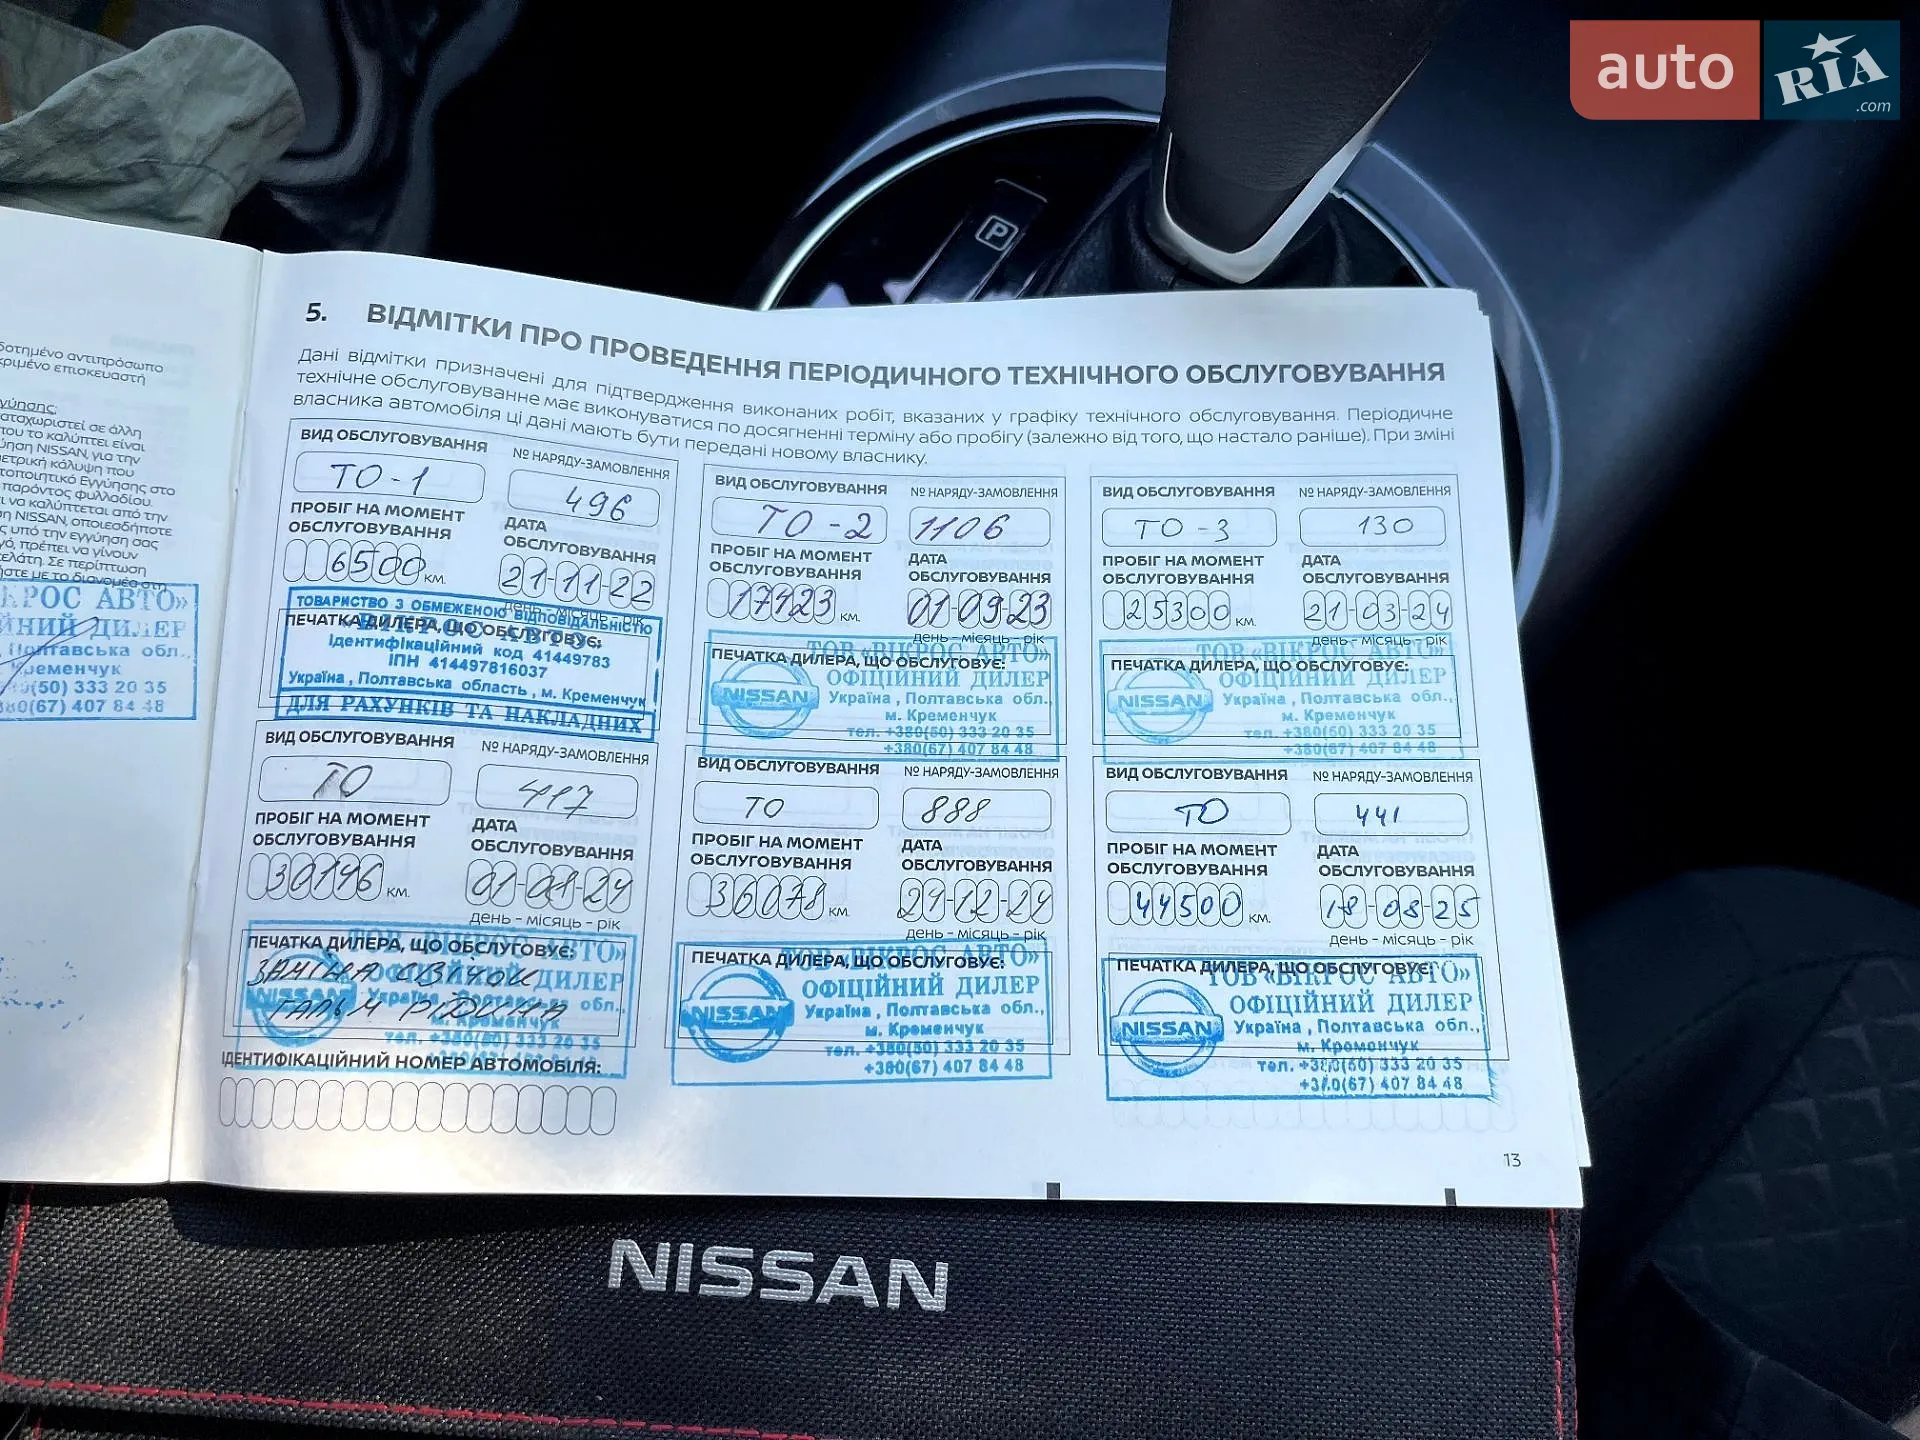 auto RIA.com
P
5. ВІДМІТКИ ПРО ПРОВЕДЕННЯ ПЕРІОДИЧНОГО ТЕХНІЧНОГО ОБСЛУГОВУВАННЯ
Дані відмітки призначені для підтвердження виконаних робіт, вказаних у графіку технічного обслуговування. Періодичне
технічне обслуговуванне має виконуватися по досягненні терміну або пробігу (залежно від того, що настало раніше). При зміні
власника автомобіля ці дані мають бути передані новому власнику.
ВИД ОБСЛУГОВУВАННЯ № НАРЯДУ-ЗАМОВЛЕННЯ
ТО-1 496
ПРОБІГ НА МОМЕНТ ОБСЛУГОВУВАННЯ ДАТА ОБСЛУГОВУВАННЯ
6500 км. 21-11-22
день - місяць - рік
ТОВАРИСТВО З ОБМЕЖЕНОЮ ВІДПОВІДАЛЬНІСТЮ
ПЕЧАТКА ДИЛЕРА, ЩО ОБСЛУГОВУЄ:
Ідентифікаційний код 41449783
ІПН 414497816037
Україна, Полтавська область, м. Кременчук
ДЛЯ РАХУНКІВ ТА НАКЛАДНИХ
ВИД ОБСЛУГОВУВАННЯ № НАРЯДУ-ЗАМОВЛЕННЯ
ТО-2 1106
ПРОБІГ НА МОМЕНТ ОБСЛУГОВУВАННЯ ДАТА ОБСЛУГОВУВАННЯ
17423 км. 01-09-23
день - місяць - рік
ТОВ «ВІКРОС АВТО»
ПЕЧАТКА ДИЛЕРА, ЩО ОБСЛУГОВУЄ:
NISSAN
ОФІЦІЙНИЙ ДИЛЕР
Україна, Полтавська обл.,
м. Кременчук
тел. +380(50) 333 20 35
+380(67) 407 84 48
ВИД ОБСЛУГОВУВАННЯ № НАРЯДУ-ЗАМОВЛЕННЯ
ТО-3 130
ПРОБІГ НА МОМЕНТ ОБСЛУГОВУВАННЯ ДАТА ОБСЛУГОВУВАННЯ
25300 км. 21-03-24
день - місяць - рік
ТОВ «ВІКРОС АВТО»
ПЕЧАТКА ДИЛЕРА, ЩО ОБСЛУГОВУЄ:
NISSAN
ОФІЦІЙНИЙ ДИЛЕР
Україна, Полтавська обл.,
м. Кременчук
тел. +380(50) 333 20 35
+380(67) 407 84 48
ВИД ОБСЛУГОВУВАННЯ № НАРЯДУ-ЗАМОВЛЕННЯ
ТО 417
ПРОБІГ НА МОМЕНТ ОБСЛУГОВУВАННЯ ДАТА ОБСЛУГОВУВАННЯ
30146 км. 01-08-24
день - місяць - рік
ПЕЧАТКА ДИЛЕРА, ЩО ОБСЛУГОВУЄ:
ЗАМІНА СВІЧОК
ГАЛЬМ РІДИНА
NISSAN
Україна, Полтавська обл.,
м. Кременчук
тел. +380(50) 333 20 35
ВИД ОБСЛУГОВУВАННЯ № НАРЯДУ-ЗАМОВЛЕННЯ
ТО 888
ПРОБІГ НА МОМЕНТ ОБСЛУГОВУВАННЯ ДАТА ОБСЛУГОВУВАННЯ
36078 км. 24-12-24
день - місяць - рік
ТОВ «ВІКРОС АВТО»
ПЕЧАТКА ДИЛЕРА, ЩО ОБСЛУГОВУЄ:
NISSAN
ОФІЦІЙНИЙ ДИЛЕР
Україна, Полтавська обл.,
м. Кременчук
тел. +380(50) 333 20 35
+380(67) 407 84 48
ВИД ОБСЛУГОВУВАННЯ № НАРЯДУ-ЗАМОВЛЕННЯ
ТО 441
ПРОБІГ НА МОМЕНТ ОБСЛУГОВУВАННЯ ДАТА ОБСЛУГОВУВАННЯ
44500 км. 18-08-25
день - місяць - рік
ТОВ «ВІКРОС АВТО»
ПЕЧАТКА ДИЛЕРА, ЩО ОБСЛУГОВУЄ:
NISSAN
ОФІЦІЙНИЙ ДИЛЕР
Україна, Полтавська обл.,
м. Кременчук
тел. +380(50) 333 20 35
+380(67) 407 84 48
ІДЕНТИФІКАЦІЙНИЙ НОМЕР АВТОМОБІЛЯ:
13
NISSAN